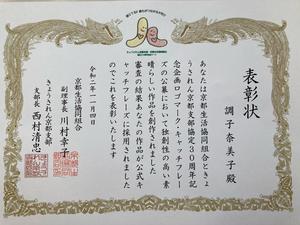 表彰状
調子奈美子殿
あなたは京都生活協同組合ときょ
うされん京都支部協定30周年記
念企画ロゴマーク・キャッチフレー
ズの公募において独創性の高い素
晴らしい作品を創作されました
審査の結果あなたの作品が公式キ
ャッチフレーズに採用されました
のでこれを表彰いたします
令和二年一一月四日
京都生活協同組合
副理事長 川村幸子
きょうされん京都支部
支部長 西村清忠